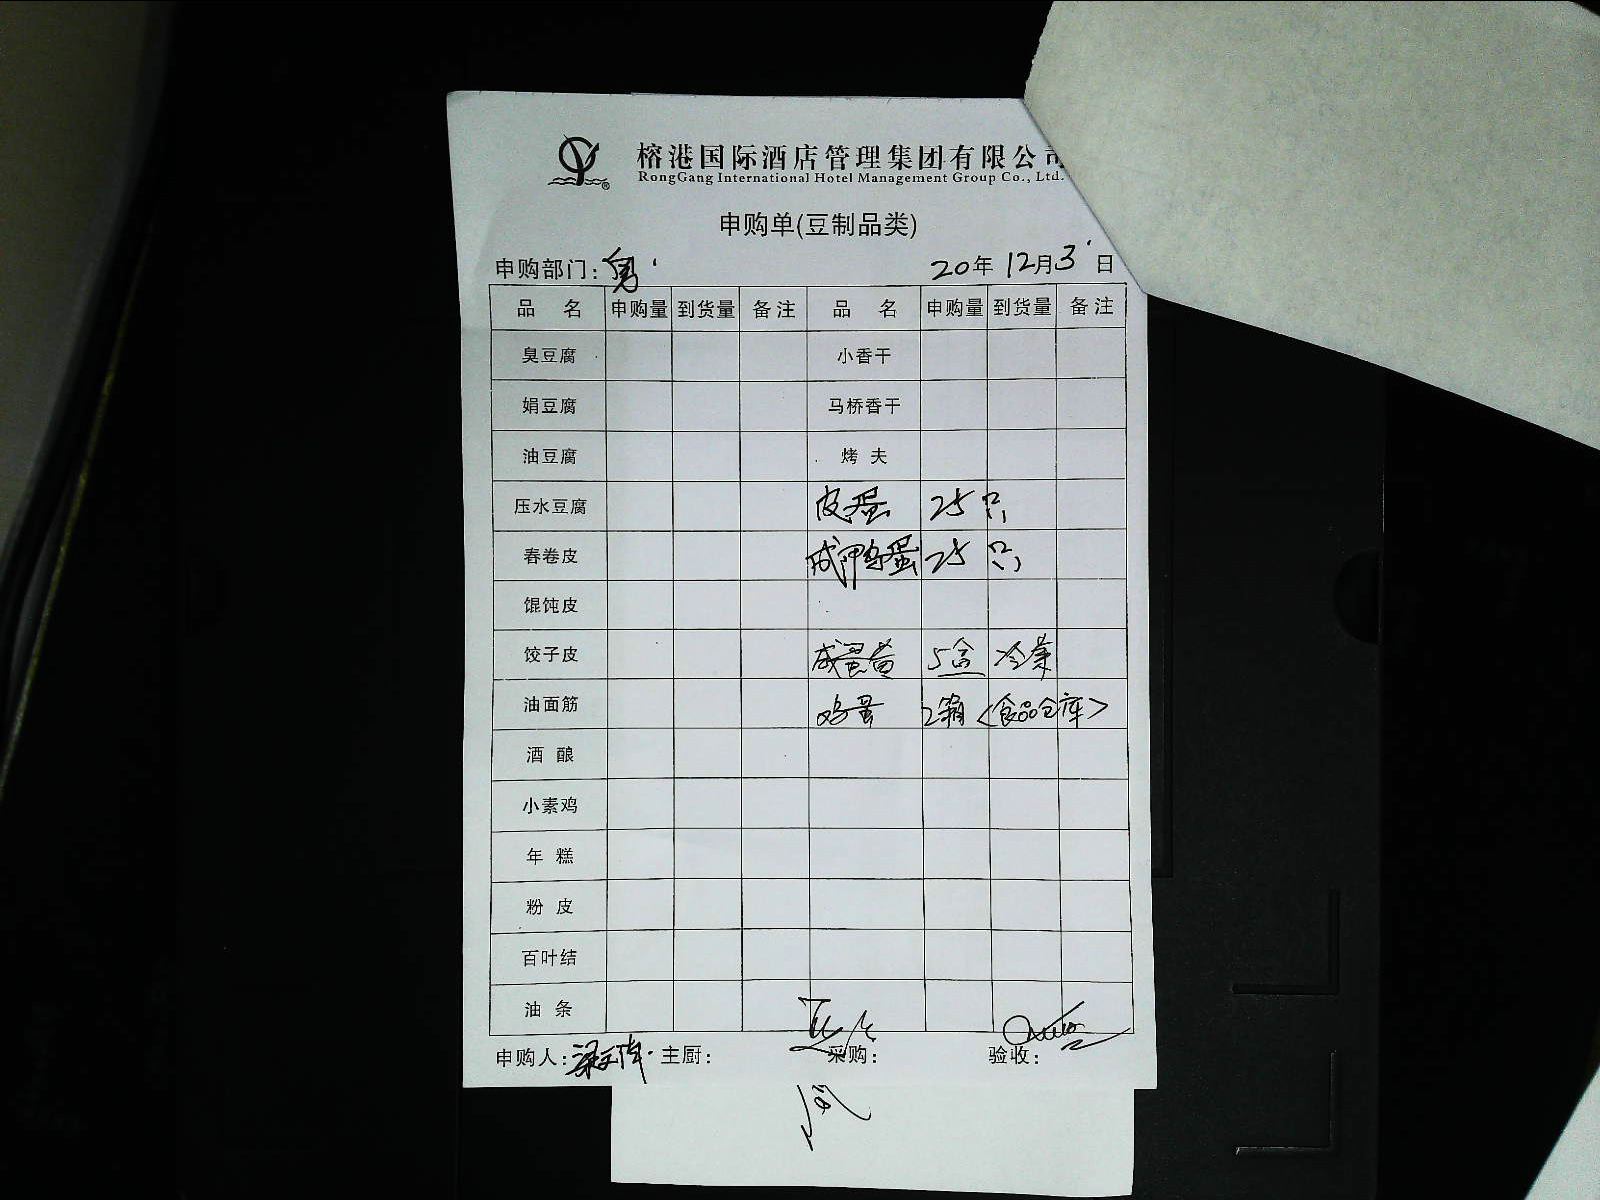 榕港国际酒店管理集团有限公司
RongGang International Hotel Management Group Co., Ltd.
申购单(豆制品类)
申购部门: 20年 12月 3日
品 名 申购量 到货量 备注 品 名 申购量 到货量 备注
臭豆腐 小香干
娟豆腐 马桥香干
油豆腐 烤 夫
压水豆腐 皮蛋 25 只
春卷皮 咸鸭蛋 25 只
馄饨皮
饺子皮 咸蛋黄 5盒 冷菜
油面筋 鸡蛋 2箱 <食品仓库>
酒 酿
小素鸡
年 糕
粉 皮
百叶结
油 条
申购人: 主厨: 采购: 验收: